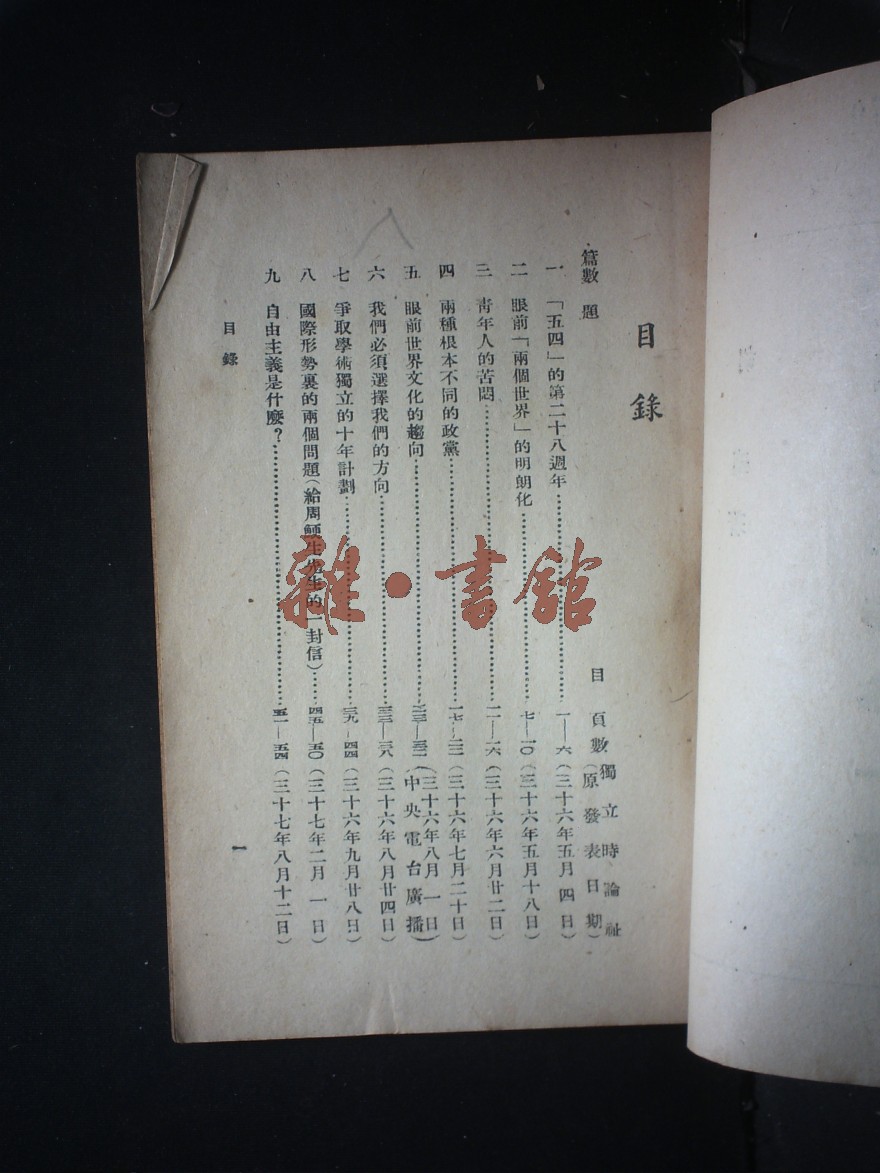 目錄
篇數 題 目 頁數(獨立時論社原發表日期)
一 「五四」的第二十八週年 一—六(三十六年五月四日)
二 眼前「兩個世界」的明朗化 七—一〇(三十六年五月十八日)
三 青年人的苦悶 一一—一六(三十六年六月廿二日)
四 兩種根本不同的政黨 一七—二二(三十六年七月二十日)
五 眼前世界文化的趨向 二三—三二(中央電台廣播三十六年八月一日)
六 我們必須選擇我們的方向 三三—三八(三十六年八月廿四日)
七 爭取學術獨立的十年計劃 三九—四四(三十六年九月廿八日)
八 國際形勢裏的兩個問題(給周鯁生先生的一封信) 四五—五〇(三十七年二月一日)
九 自由主義是什麼? 五一—五四(三十七年八月十二日)
目錄 一
雜·書館